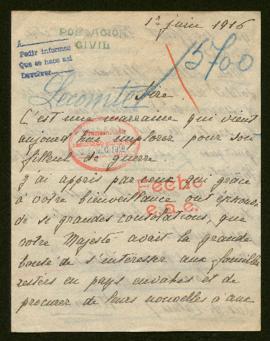 1er juin 1916
POBLACION
CIVIL
Pedir informe
Que se hace así
Devolver
15700
Lecomte
Sire
C'est une marraine qui vient
aujourd'hui implorer pour son
filleul de guerre
J'ai appris par ceux qui grâce
à votre bienveillance ont éprouvé
Fecho
de si grandes consolations, que
votre Majesté avait la grande
bonté de s'intéresser aux familles
restées en pays envahis et de
procurer de leurs nouvelles à ceux